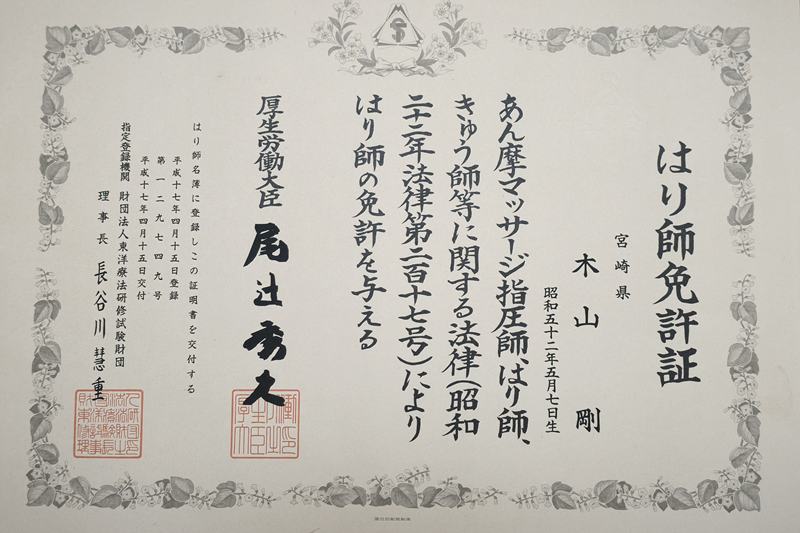 はり師免許証
宮崎県
木山 剛
昭和五十二年五月七日生
あん摩マッサージ指圧師、はり師、
きゅう師等に関する法律(昭和
二十二年法律第二百十七号)により
はり師の免許を与える
厚生労働大臣 尾辻秀久
はり師名簿に登録しこの証明書を交付する
平成十七年四月十五日登録
第一二九七四九号
平成十七年四月十五日交付
指定登録機関 財団法人東洋療法研修試験財団
理事長 長谷川慧重